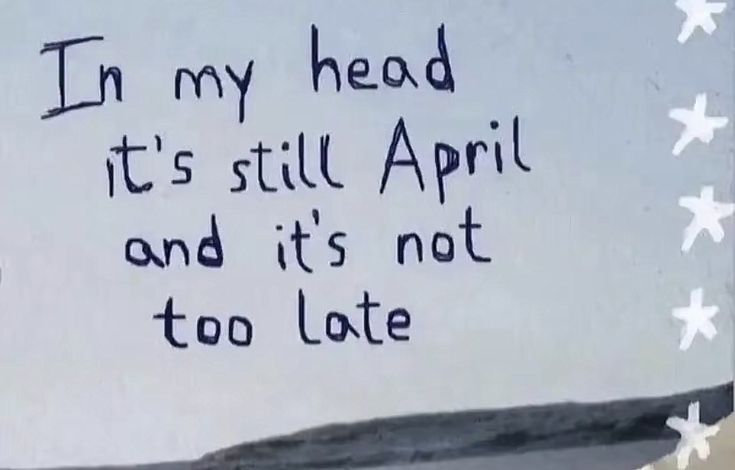 In my head
it's still April
and it's not
too late